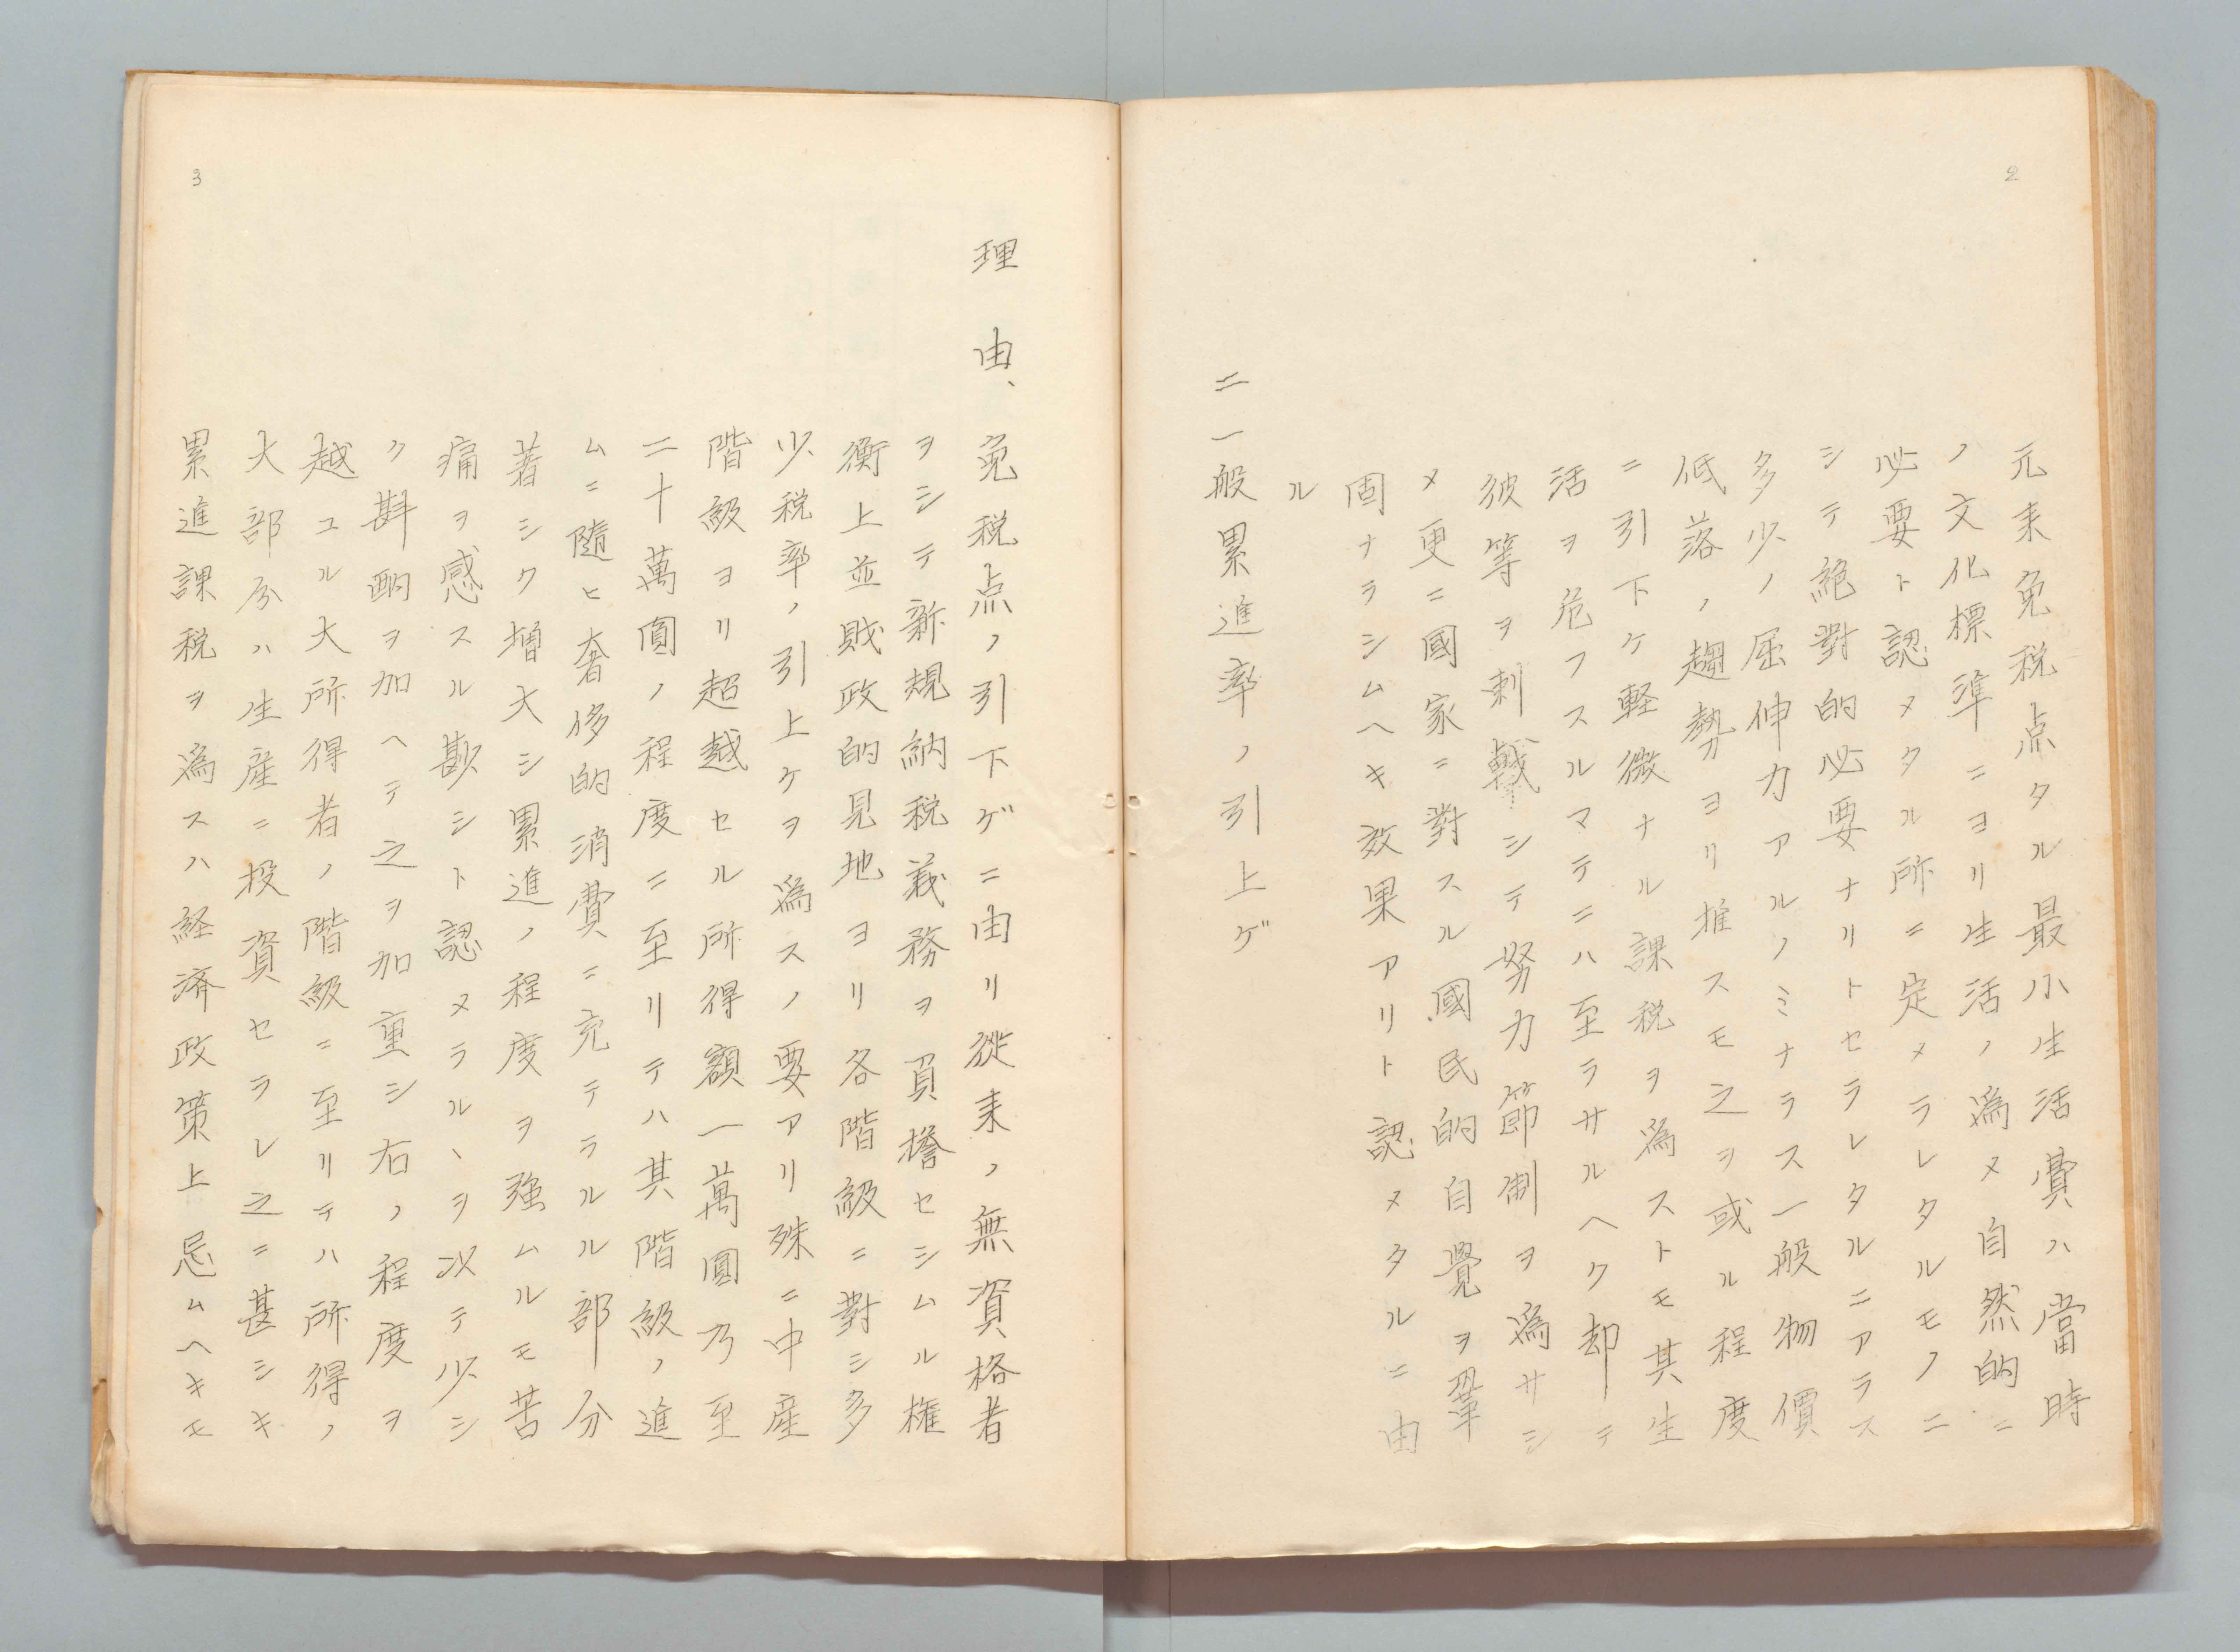 2
元来免税点タル最小生活費ハ當時
ノ文化標準ニヨリ生活ノ為メ自然的ニ
必要ト認メタル所ニ定メラレタルモノニ
シテ絶對的必要ナリトセラレタルニアラス
多少ノ屈伸力アルノミナラス一般物價
低落ノ趨勢ヨリ推スモ之ヲ或ル程度
ニ引下ケ軽微ナル課税ヲ為ストモ其生
活ヲ危フスルマテニハ至ラサルヘク却テ
彼等ヲ刺戟シテ努力節制ヲ為サシ
メ更ニ國家ニ對スル國民的自覺ヲ鞏
固ナラシムヘキ效果アリト認メタルニ由
ル
二一般累進率ノ引上ゲ
3
理由、免税点ノ引下ゲニ由リ従来ノ無資格者
ヲシテ新規納税義務ヲ負擔セシムル権
衡上並財政的見地ヨリ各階級ニ對シ多
少税率ノ引上ケヲ為スノ要アリ殊ニ中産
階級ヨリ超越セル所得額一萬圓乃至
二十萬圓ノ程度ニ至リテハ其階級ノ進
ムニ隨ヒ奢侈的消費ニ充テラルル部分
著シク増大シ累進ノ程度ヲ強ムルモ苦
痛ヲ感スル尠シト認メラルヽヲ以テ少シ
ク斟酌ヲ加ヘテ之ヲ加重シ右ノ程度ヲ
越ユル大所得者ノ階級ニ至リテハ所得ノ
大部分ハ生産ニ投資セラレ之ニ甚シキ
累進課税ヲ為スハ経済政策上忌ムヘキモ